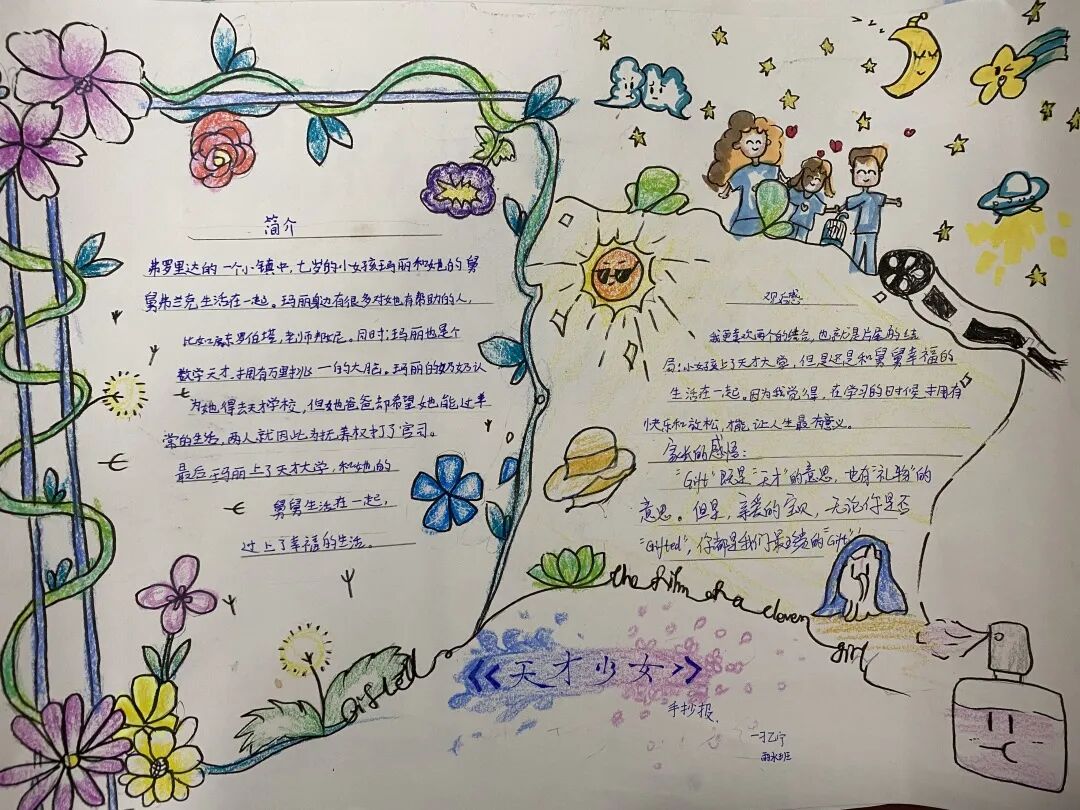 简介
弗罗里达的一个小镇中，七岁的小女孩玛丽和她的舅
舅弗兰克生活在一起。玛丽身边有很多对她有帮助的人，
比如房东罗伯塔，老师邦妮。同时，玛丽也是个
数学天才，拥有万里挑一的大脑。玛丽的奶奶认
为她得去天才学校，但她爸爸却希望她能过平
常的生活，两人就因此为抚养权打了官司。
最后玛丽上了天才大学，和她的
舅舅生活在一起，
过上了幸福的生活。
观后感
我更喜欢两个的结合，也就是片尾的结
局：小女孩上了天才大学，但是还是和舅舅幸福的
生活在一起。因为我觉得，在学习的时候，拥有
快乐和放松，才能让人生最有意义。
家长的感悟：
“Gift”既是“天才”的意思，也有“礼物”的
意思。但是，亲爱的宝贝，无论你是否
“Gifted”，你都是我们最珍贵的“Gift”！
Gifted
the film of a clever
girl
《天才少女》
手抄报
雨水班